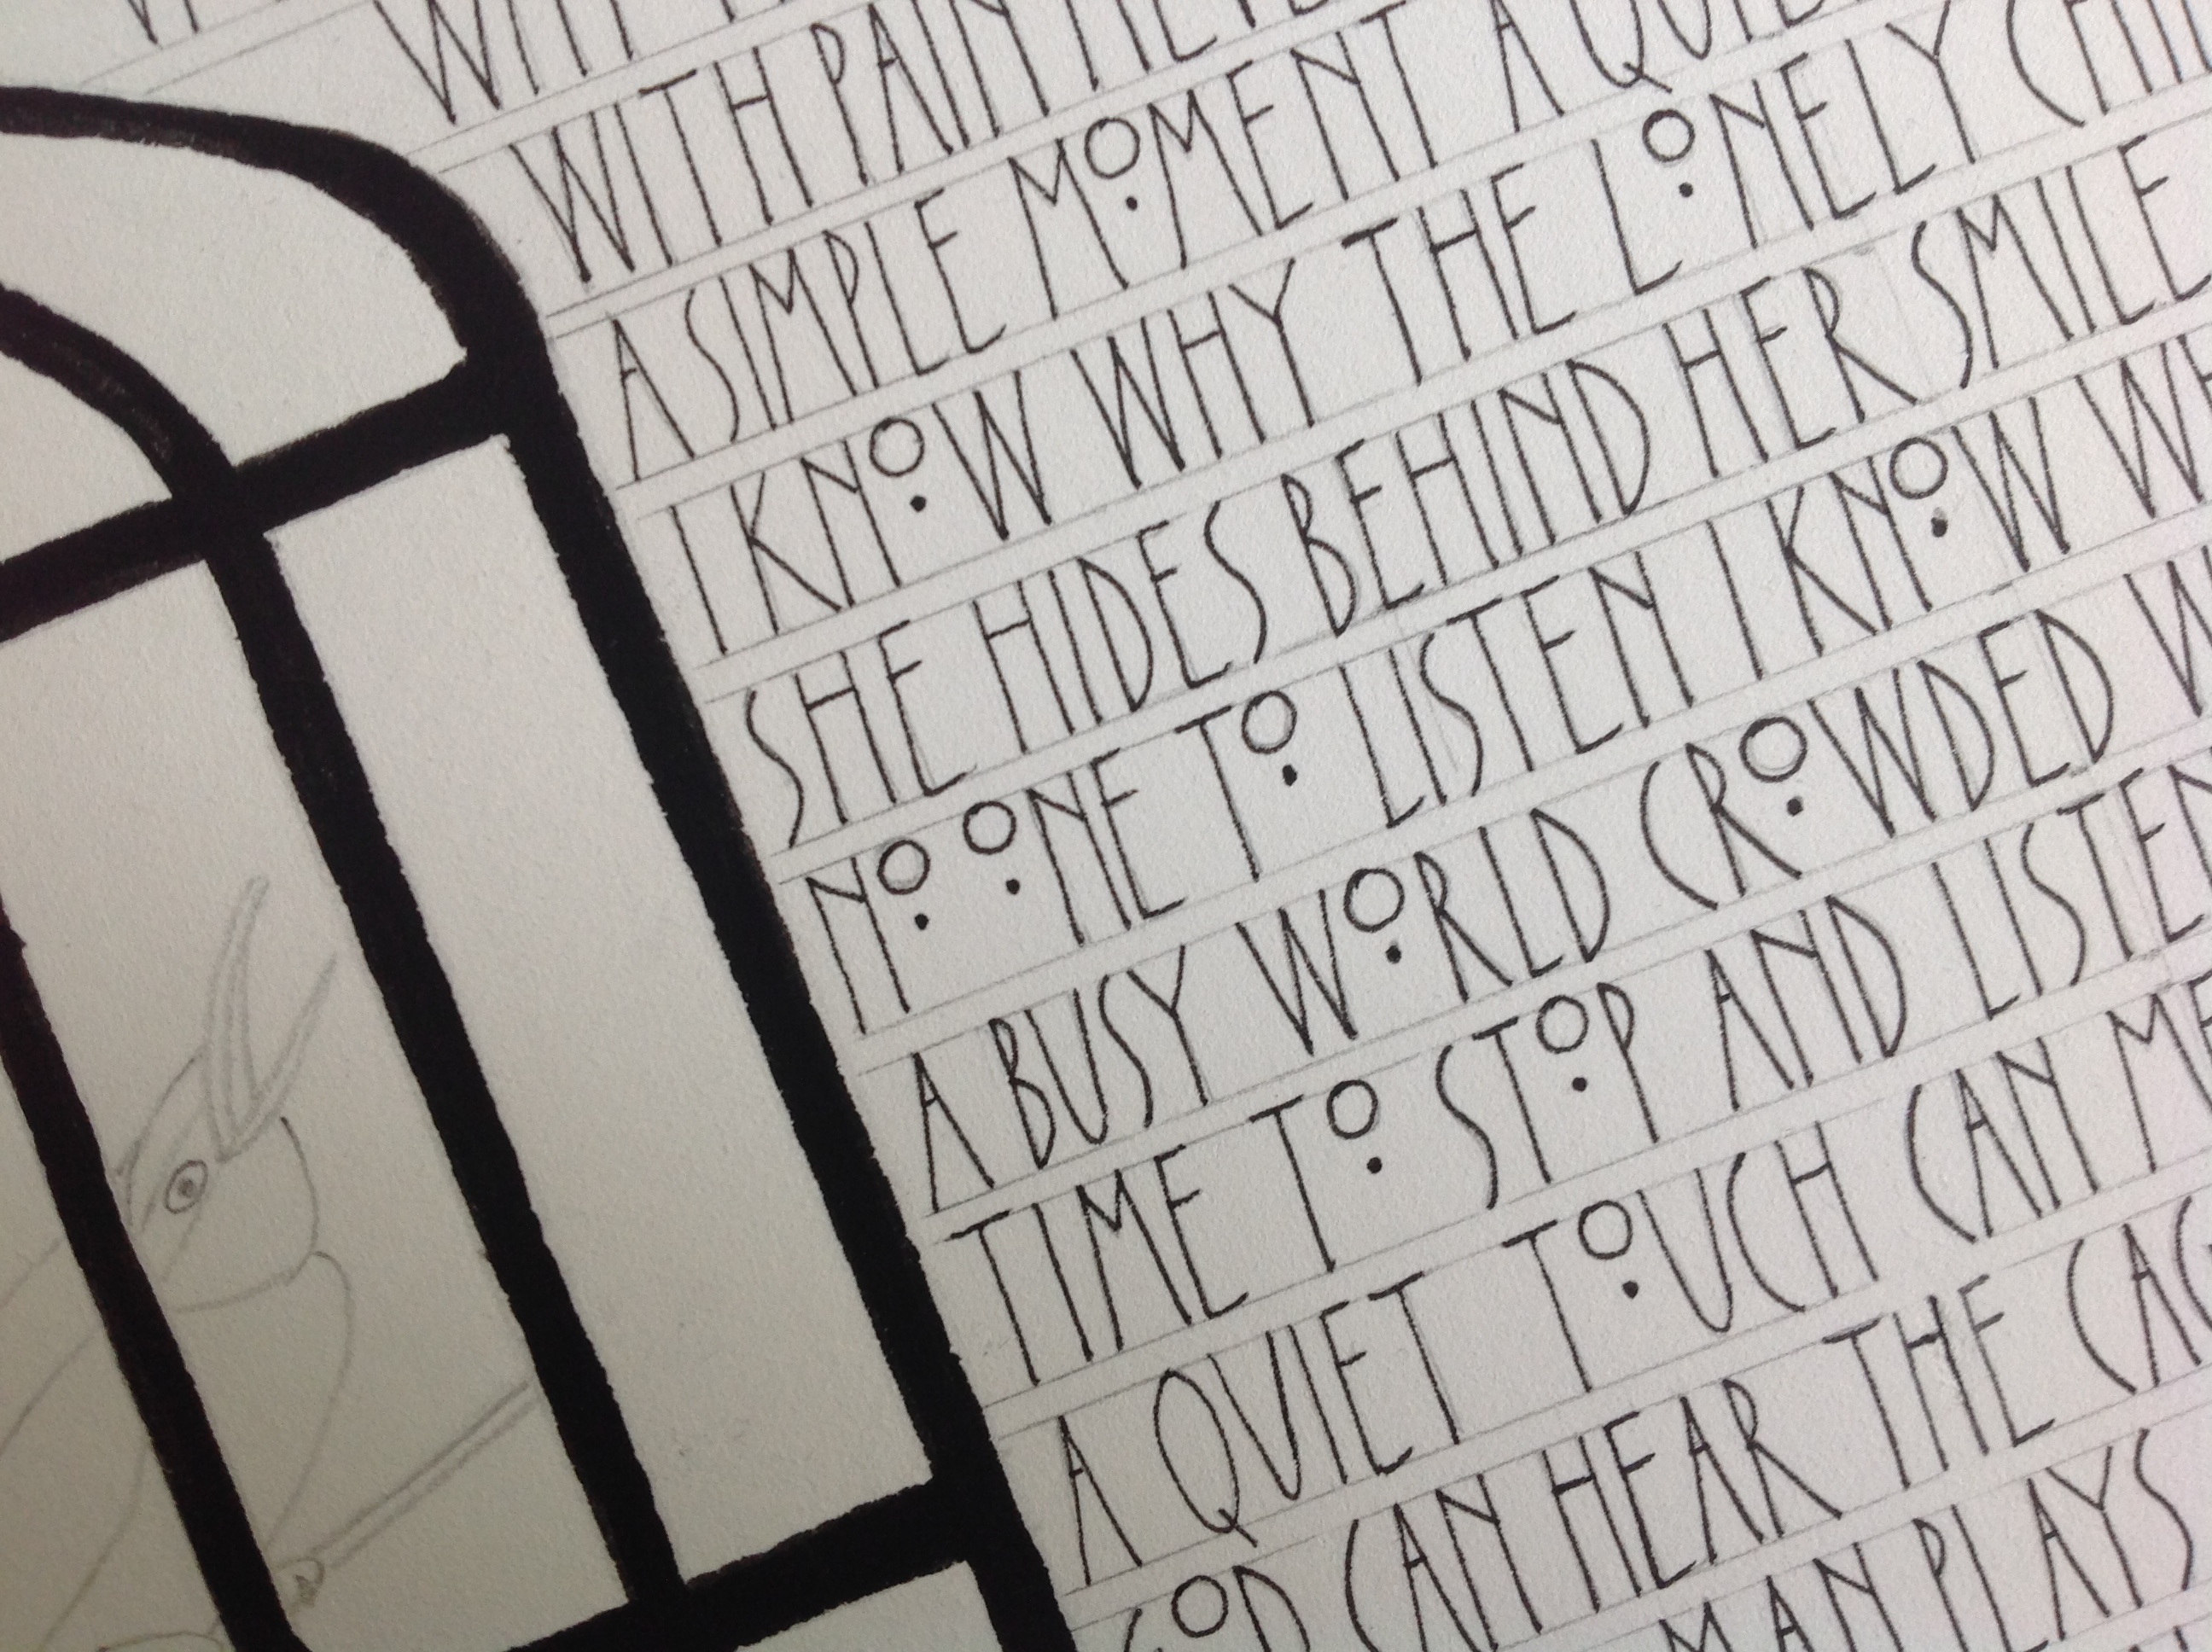 WITH PAIN
A SIMPLE MOMENT A
I KNOW WHY THE LONELY
SHE HIDES BEHIND HER SMILE
NO ONE TO LISTEN I KNOW
A BUSY WORLD CROWDED
TIME TO STOP AND LISTEN
A QUIET TOUCH CAN
GOD CAN HEAR THE
MAN PLAYS